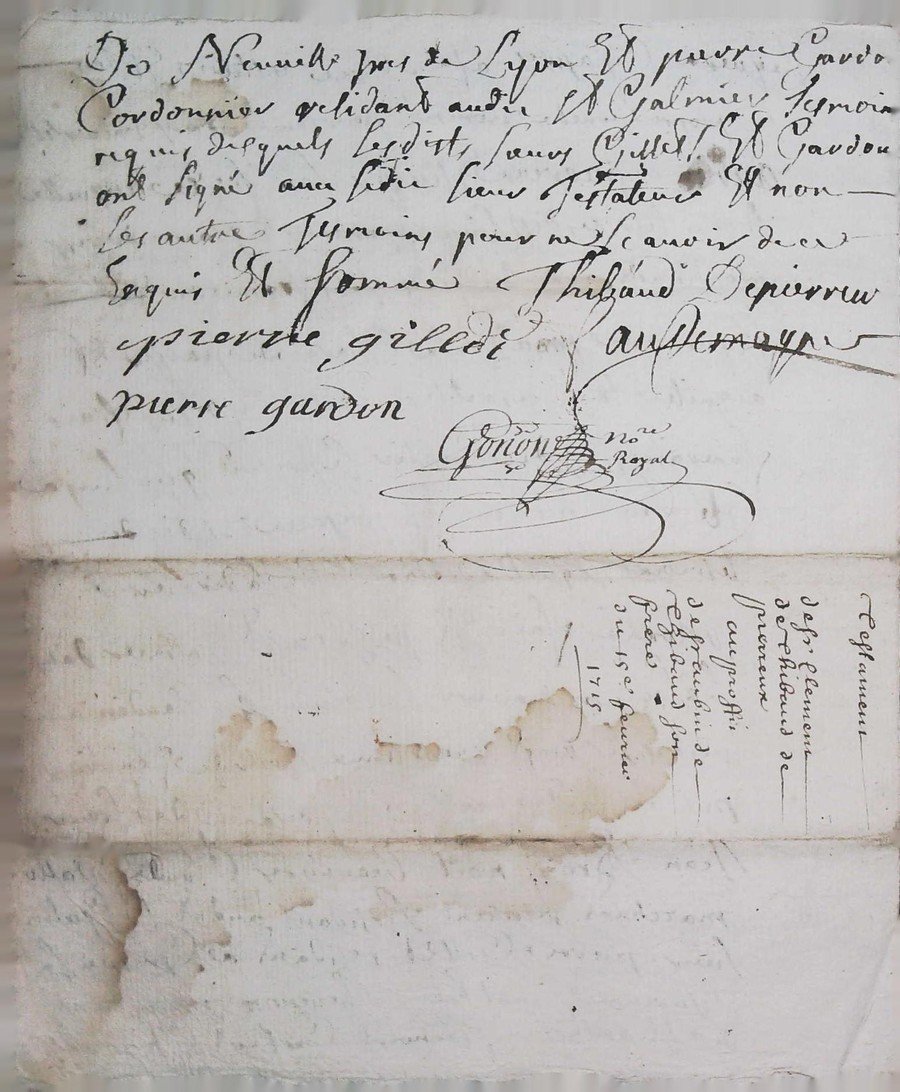 De Neuville pres de Lyon Et pierre Gardo
Cordonnier residant audit St Galmier Tesmoin
requis desquels lesdits sieurs Gillet Et Gardon
ont signé avec ledit sieur Testateur Et non
les autre Tesmoins pour ne scavoir de ce
Enquis Et sommé Thibaud Depierreux
pierre gillet
pierre gardon
Gonon Nore
Royal
Testament
de sr Clement
de Thibaud de
pierreux
au proffit
de sr aubin de
Thibaud son
frere
du 15e feurier
1715